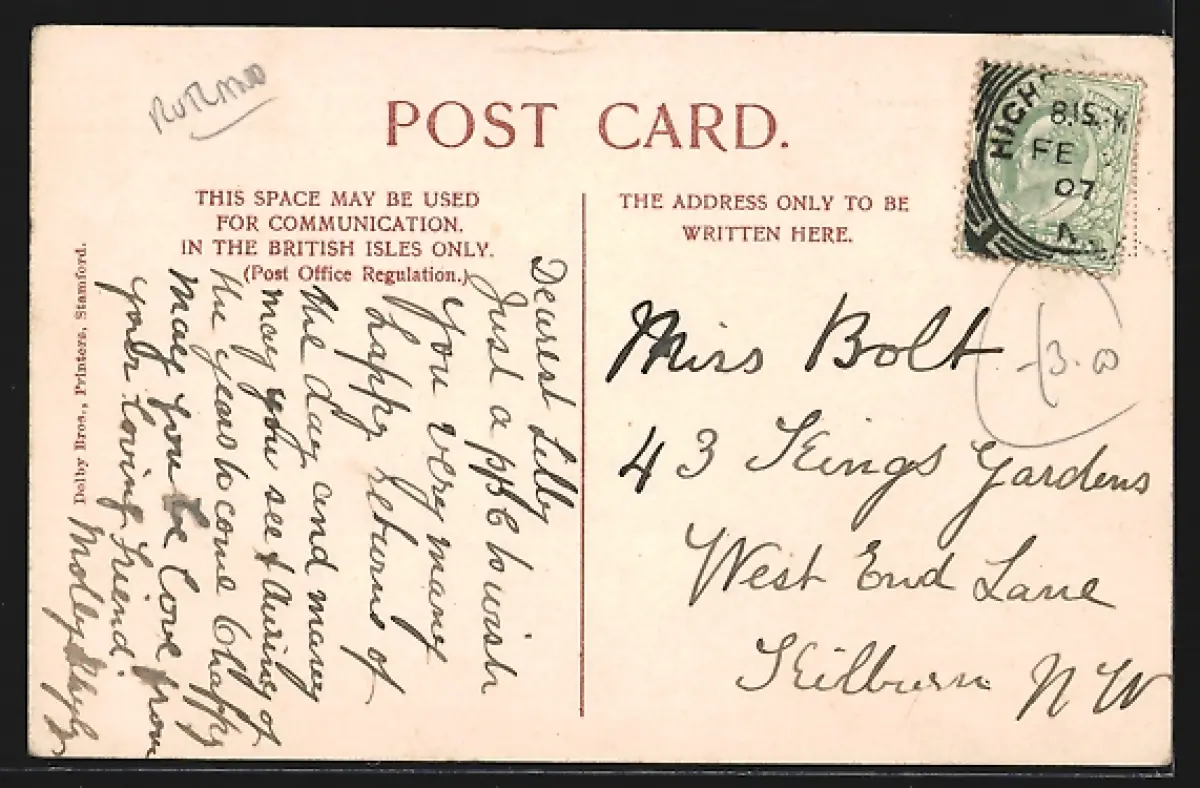 RUTLAND
POST CARD.
THIS SPACE MAY BE USED
FOR COMMUNICATION.
IN THE BRITISH ISLES ONLY.
(Post Office Regulation.)
THE ADDRESS ONLY TO BE
WRITTEN HERE.
HIGH
8.15
FE
07
Dearest Lilly
Just a ppc to wish
you very many
happy returns of
the day and many
may you see &
the years to come & happy
may you be love from
your loving friend.
Molly
Miss Bolt
43 Kings Gardens
West End Lane
Kilburn N W
3.00
Dolby Bros., Printers, Stamford.